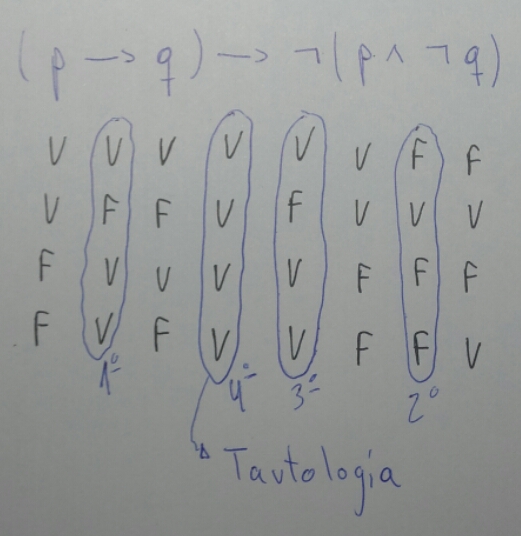 (p → q) → ¬(p ∧ ¬q)
V V V V V V F F
V F F V F V V V
F V V V V F F F
F V F V V F F V
1º 4º 3º 2º
Tautología